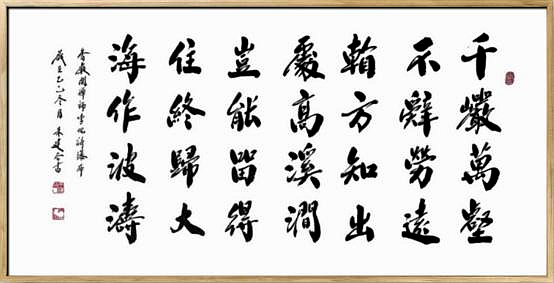 千巖萬壑
不辭勞遠
看方知出
處高溪澗
豈能留得
住終歸大
海作波濤
香嚴閑禪師李忱詩瀑布
乙巳冬月 朱建 書